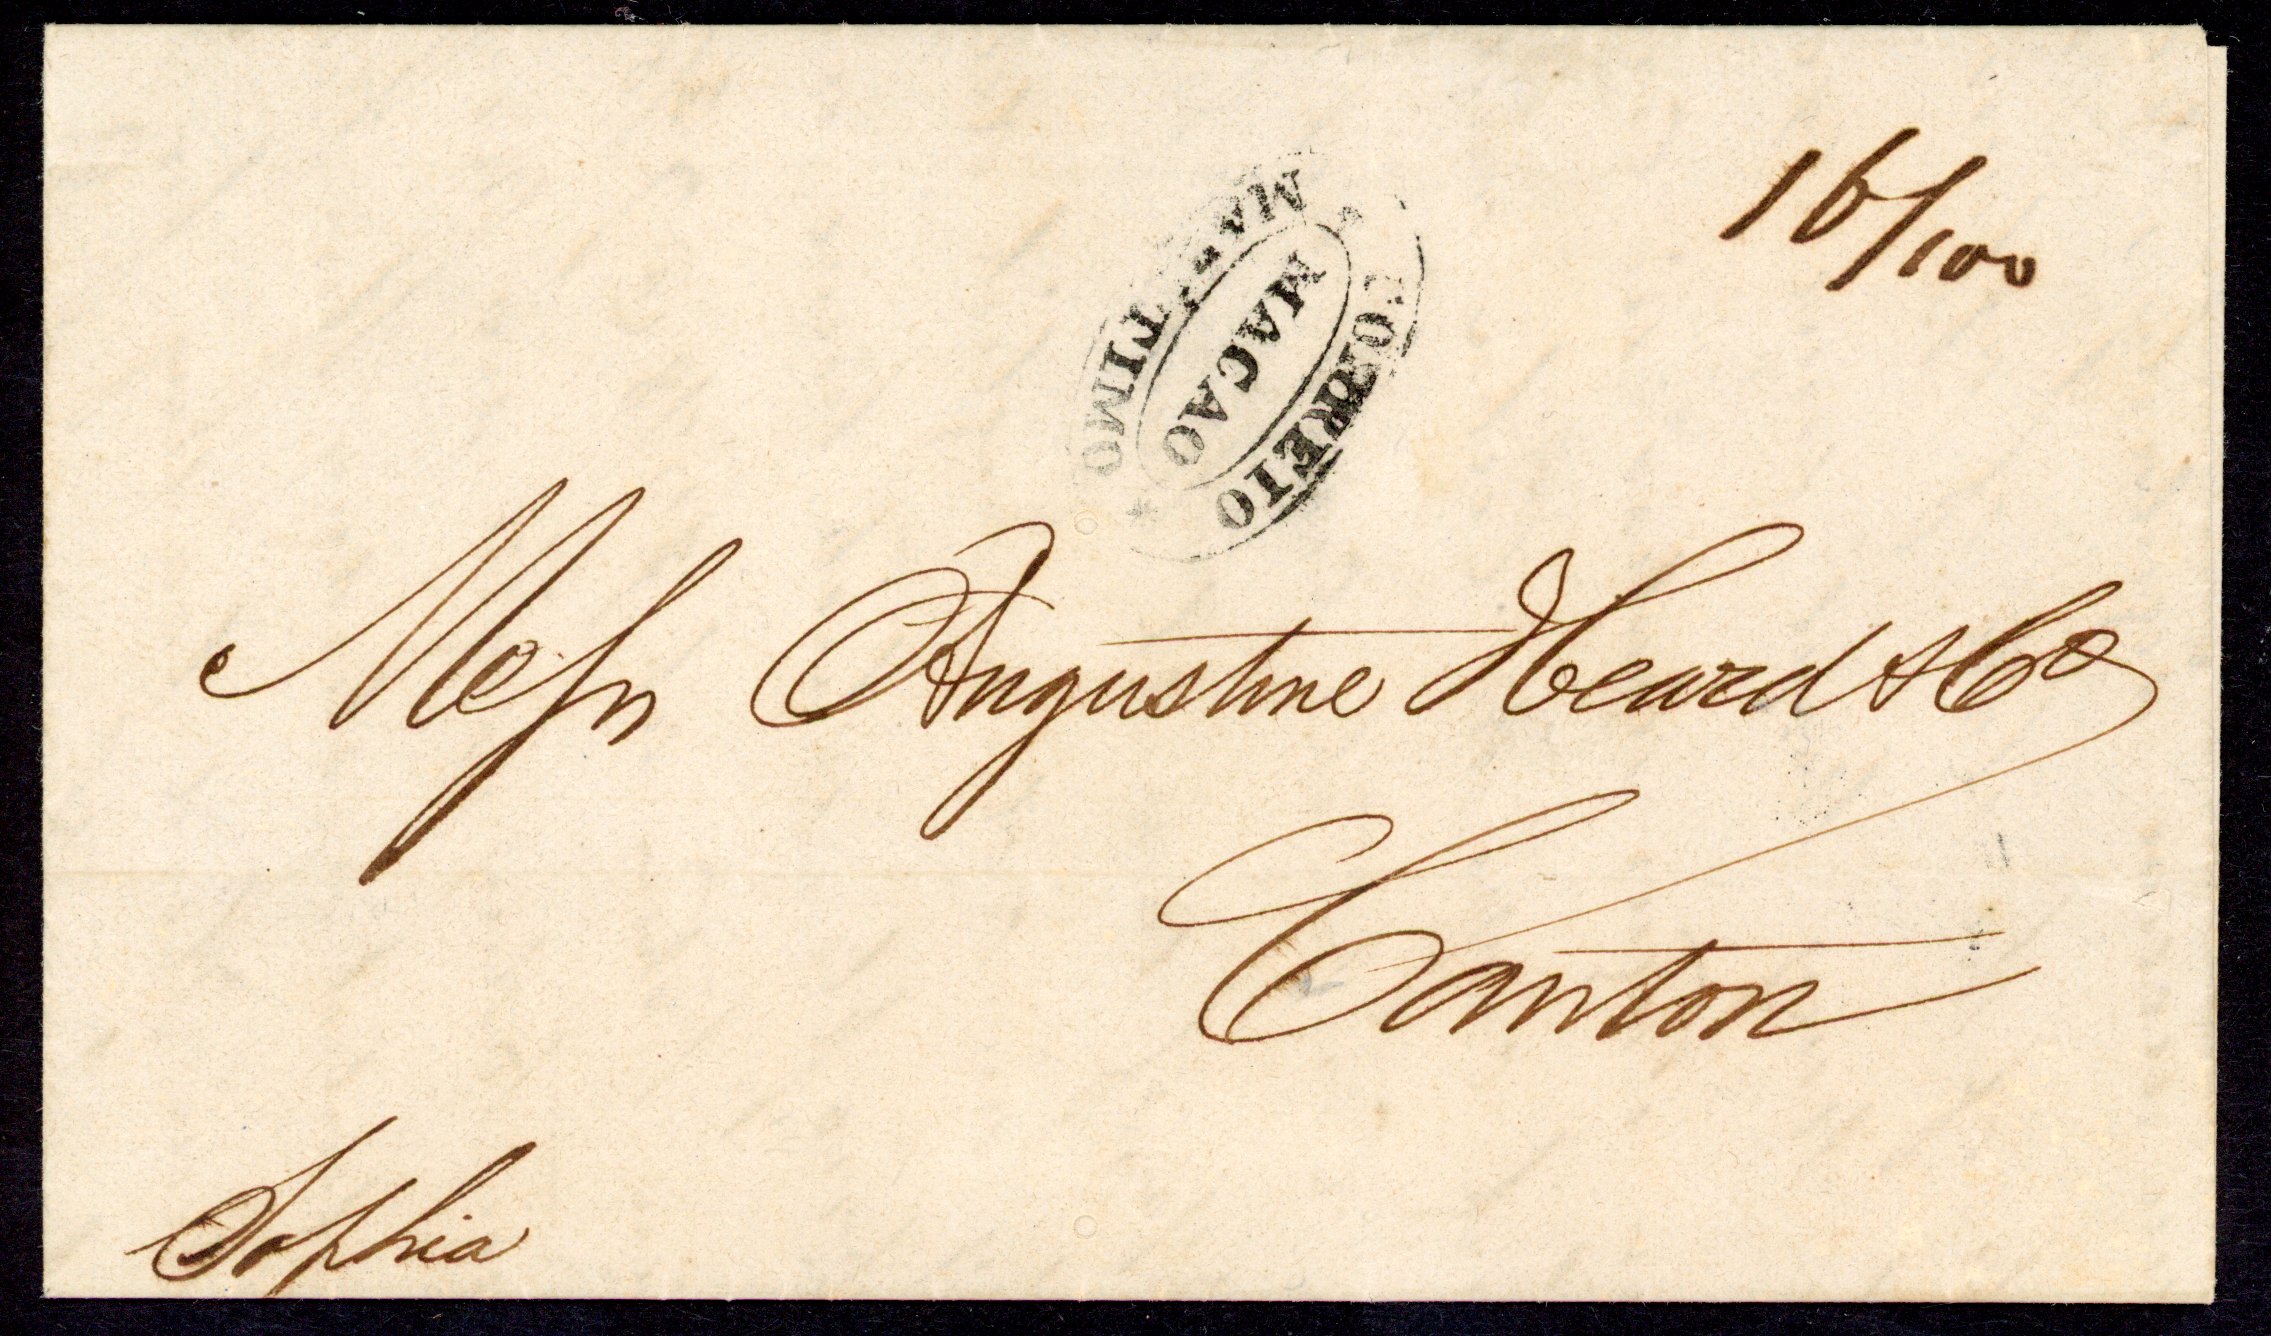 16/100
CORREIO
MACAO
MARITIMO
Messrs Augustine Heard & Co
Canton
Sophia